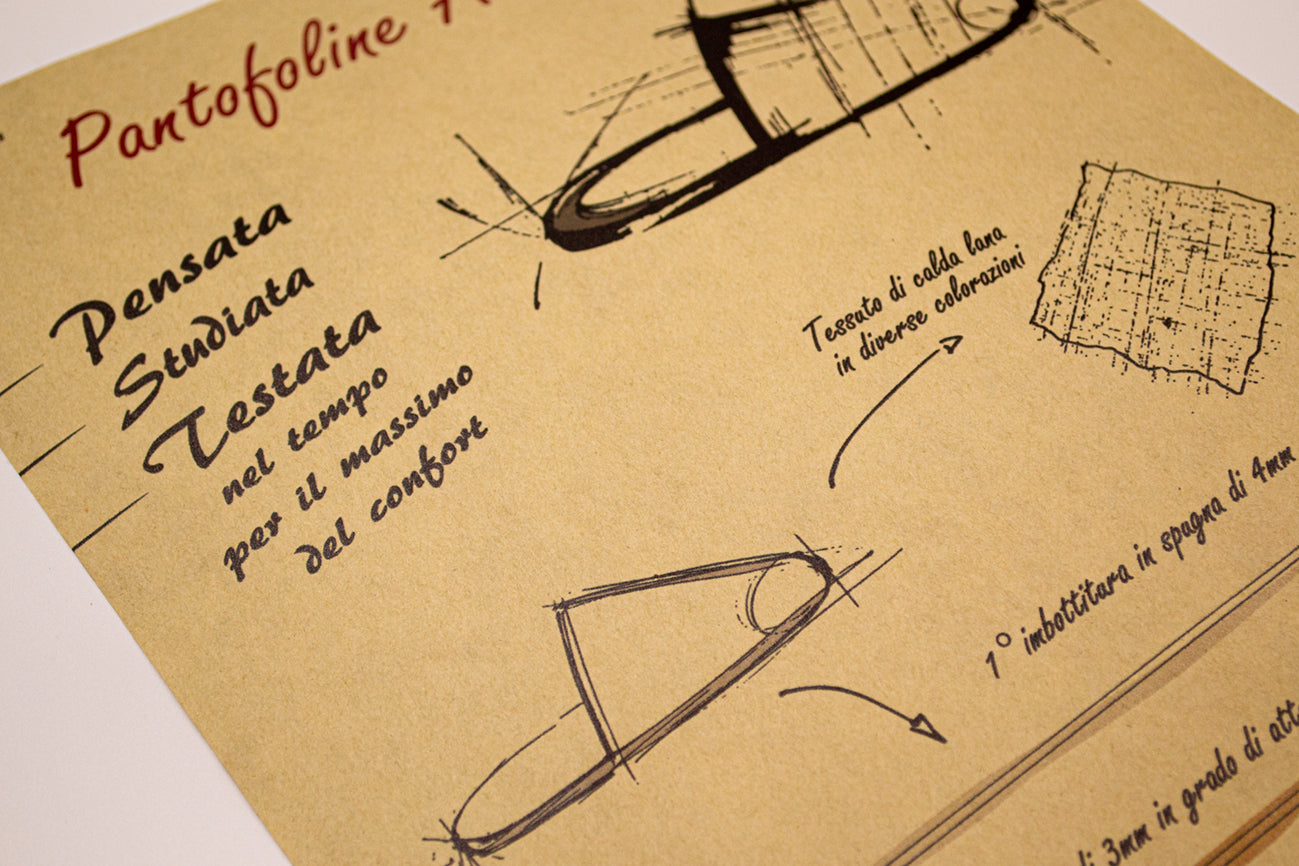 Pantofoline
Pensata
Studiata
Testata
nel tempo
per il massimo
del confort
Tessuto di calda lana
in diverse colorazioni
1° imbottitura in spugna di 4mm
di 3mm in grado di